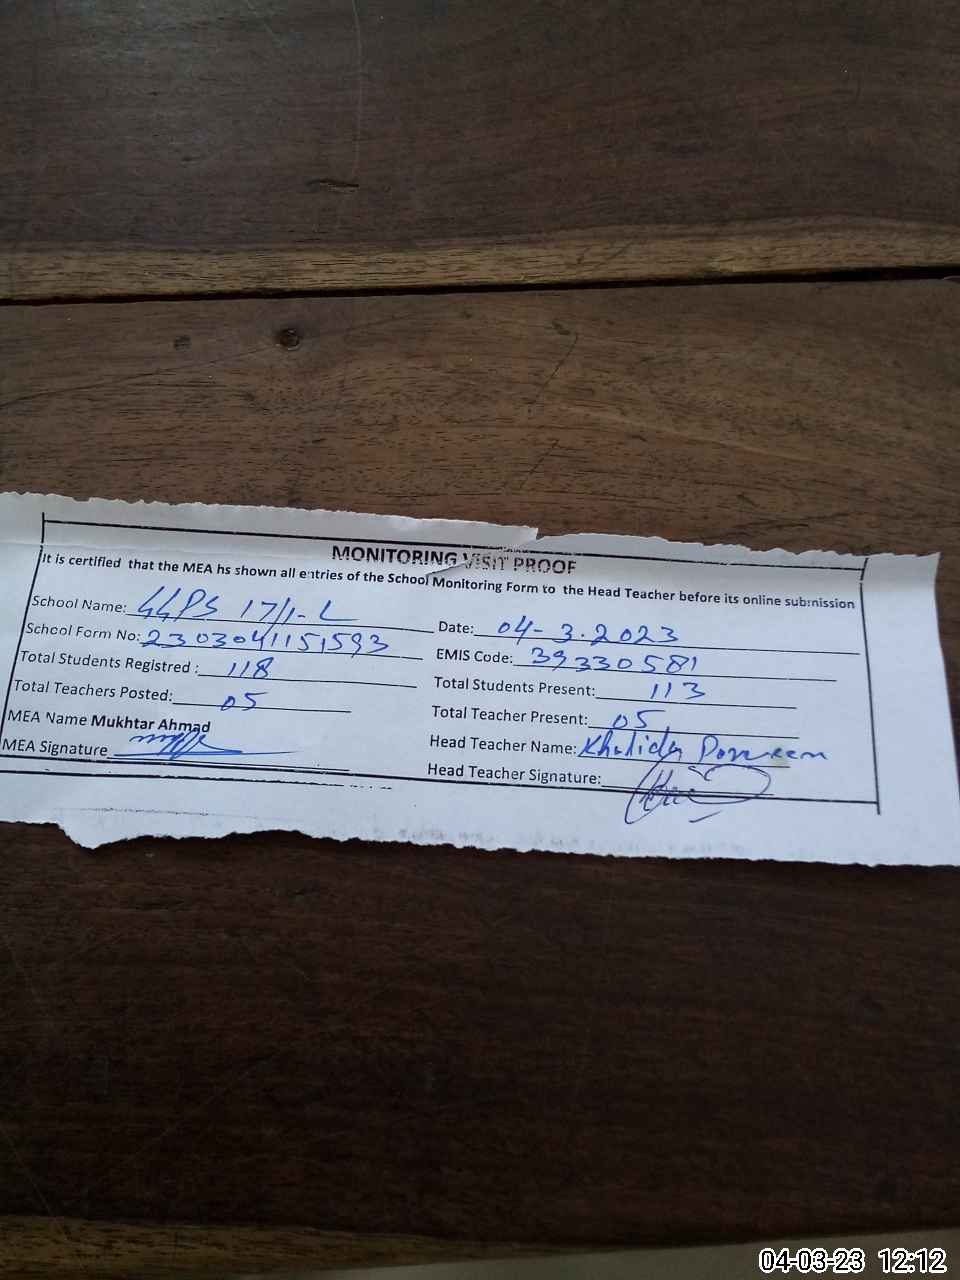 MONITORING VISIT PROOF
It is certified that the MEA hs shown all entries of the School Monitoring Form to the Head Teacher before its online submission
School Name: GGPS 17/1-L
Date: 04-3.2023
School Form No: 2303041151593
EMIS Code: 39330581
Total Students Registered : 118
Total Students Present: 113
Total Teachers Posted: 05
Total Teacher Present: 05
MEA Name Mukhtar Ahmad
Head Teacher Name: Khalida Parveen
MEA Signature
Head Teacher Signature:
04-03-23 12:12